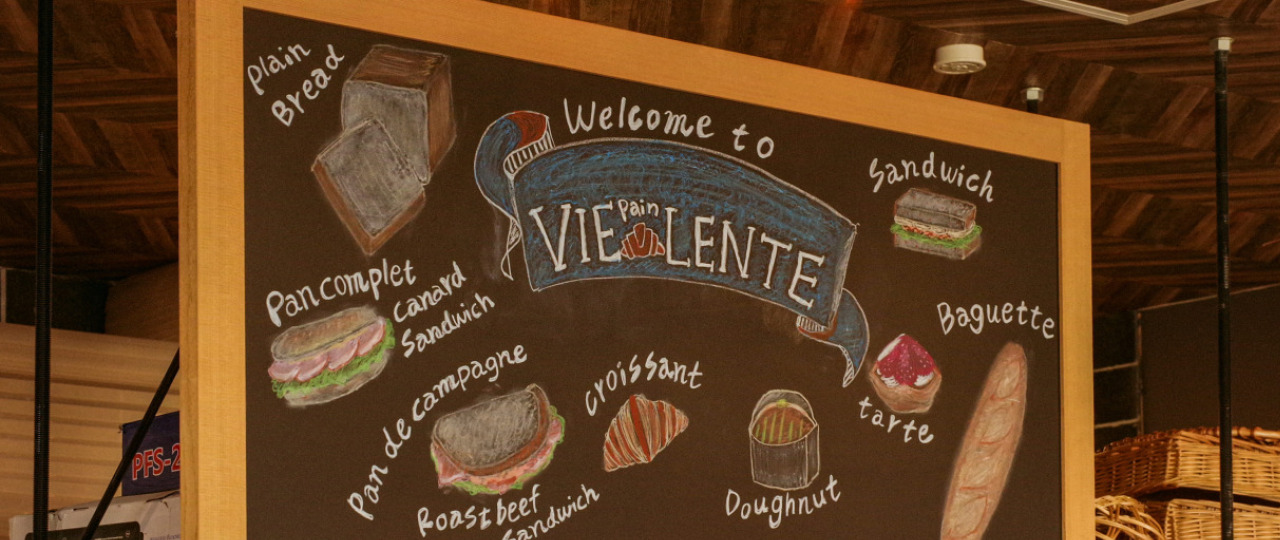 Plain
Bread
Welcome to
VIE Pain LENTE
Sandwich
Pan complet
Canard
Sandwich
Baguette
Pan de campagne
croissant
tarte
Roast beef
Sandwich
Doughnut
PFS-2